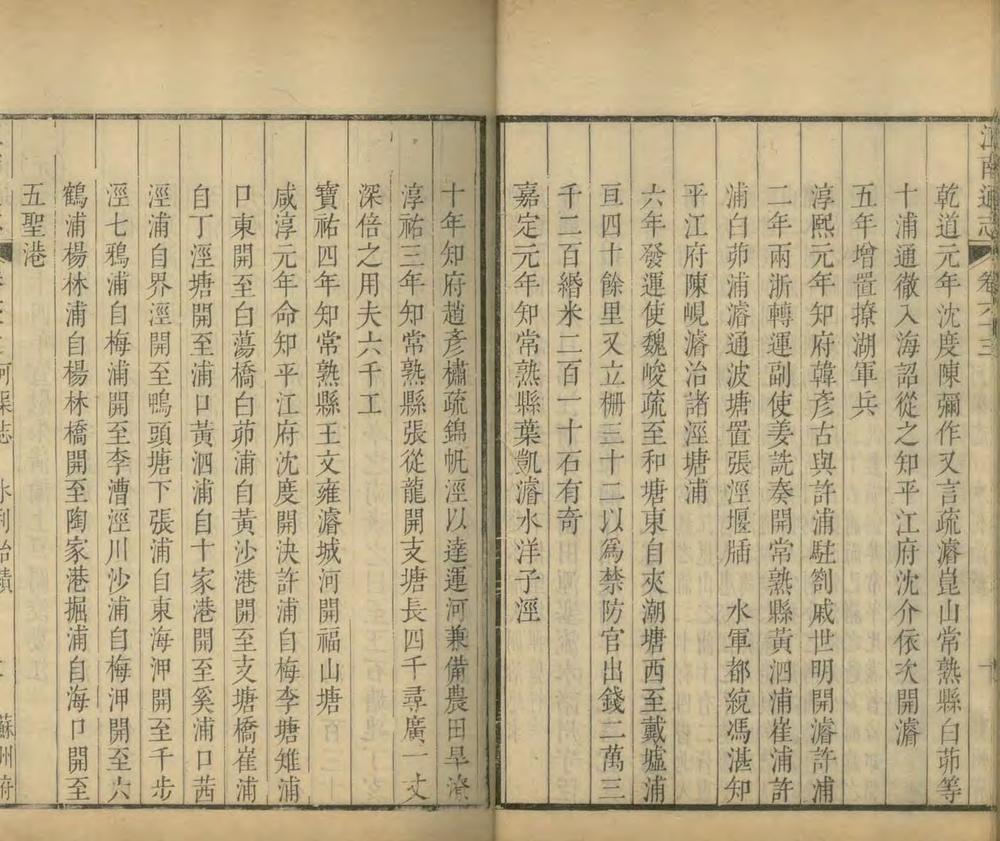 江南通志 卷六十三
乾道元年沈度陳彌作又言疏濬崑山常熟縣白茆等
十浦通徹入海詔從之知平江府沈介依次開濬
五年增置撩湖軍兵
淳熙元年知府韓彥古與許浦駐劄戚世明開濬許浦
二年兩浙轉運副使姜詵奏開常熟縣黃泗浦崔浦許
浦白茆浦濬通波塘置張涇堰牐 水軍都統馮湛知
平江府陳峴濬治諸涇塘浦
六年發運使魏峻疏至和塘東自夾潮塘西至戴墟浦
亘四十餘里又立柵三十二以爲禁防官出錢二萬三
千二百緡米二百一十石有奇
嘉定元年知常熟縣葉凱濬水洋子涇
十年知府趙彥橚疏錦帆涇以達運河兼備農田旱澇
淳祐三年知常熟縣張從龍開支塘長四千尋廣一丈
深倍之用夫六千工
寶祐四年知常熟縣王文雍濬城河開福山塘
咸淳元年命知平江府沈度開決許浦自梅李塘雉浦
口東開至白蕩橋白茆浦自黃沙港開至支塘橋崔浦
自丁涇塘開至浦口黃泗浦自十家港開至奚浦口茜
涇浦自界涇開至鴨頭塘下張浦自東海浀開至千步
涇七鴉浦自梅浦開至李漕涇川沙浦自梅浀開至六
鶴浦楊林浦自楊林橋開至陶家港掘浦自海口開至
五聖港
河渠志 水利治績 蘇州府